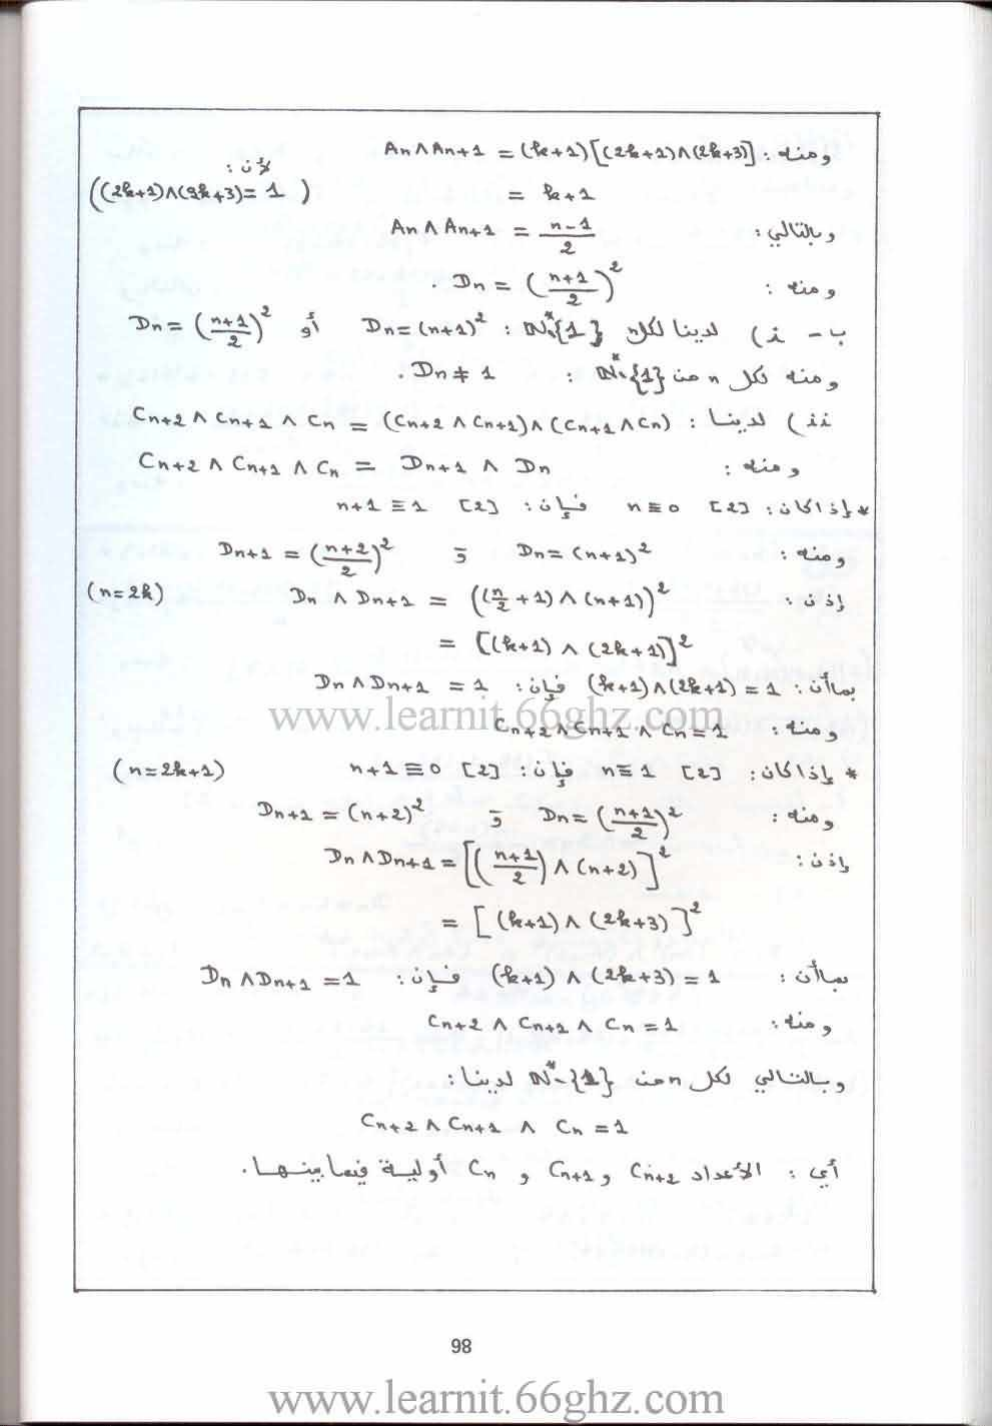 ومنه : An ∧ An+1 = (k+1)[(2k+1)∧(2k+3)]
= k+1 لأن : ((2k+1)∧(2k+3)= 1 )
وبالتالي : An ∧ An+1 = \frac{n-1}{2}
ومنه : Dn = (\frac{n+1}{2})² .
ب - i ) لدينا لكل n ℕ*-{1} : Dn=(n+1)² أو Dn = (\frac{n+1}{2})²
ومنه لكل n من ℕ*-{1} : Dn ≠ 1 .
ii ) لدينا : Cn+2 ∧ Cn+1 ∧ Cn = (Cn+2 ∧ Cn+1) ∧ (Cn+1 ∧ Cn)
ومنه : Cn+2 ∧ Cn+1 ∧ Cn = Dn+1 ∧ Dn
* إذا كان : n ≡ 0 [2] فإن : n+1 ≡ 1 [2]
ومنه : Dn = (n+1)² و Dn+1 = (\frac{n+2}{2})²
إذن : Dn ∧ Dn+1 = ((\frac{n}{2}+1) ∧ (n+1))² (n=2k)
= [(k+1) ∧ (2k+1)]²
بما أن : (k+1)∧(2k+1) = 1 فإن : Dn ∧ Dn+1 = 1
www.learnit.66ghz.com
ومنه : Cn+2 ∧ Cn+1 ∧ Cn = 1
* إذا كان : n ≡ 1 [2] فإن : n+1 ≡ 0 [2] (n=2k+1)
ومنه : Dn = (\frac{n+1}{2})² و Dn+1 = (n+2)²
إذن : Dn ∧ Dn+1 = [(\frac{n+1}{2}) ∧ (n+2)]²
= [(k+1) ∧ (2k+3)]²
بما أن : (k+1) ∧ (2k+3) = 1 فإن : Dn ∧ Dn+1 = 1
ومنه : Cn+2 ∧ Cn+1 ∧ Cn = 1
وبالتالي لكل n من ℕ*-{1} لدينا :
Cn+2 ∧ Cn+1 ∧ Cn = 1
أي : الأعداد Cn+2 و Cn+1 و Cn أولية فيما بينها .
98
www.learnit.66ghz.com